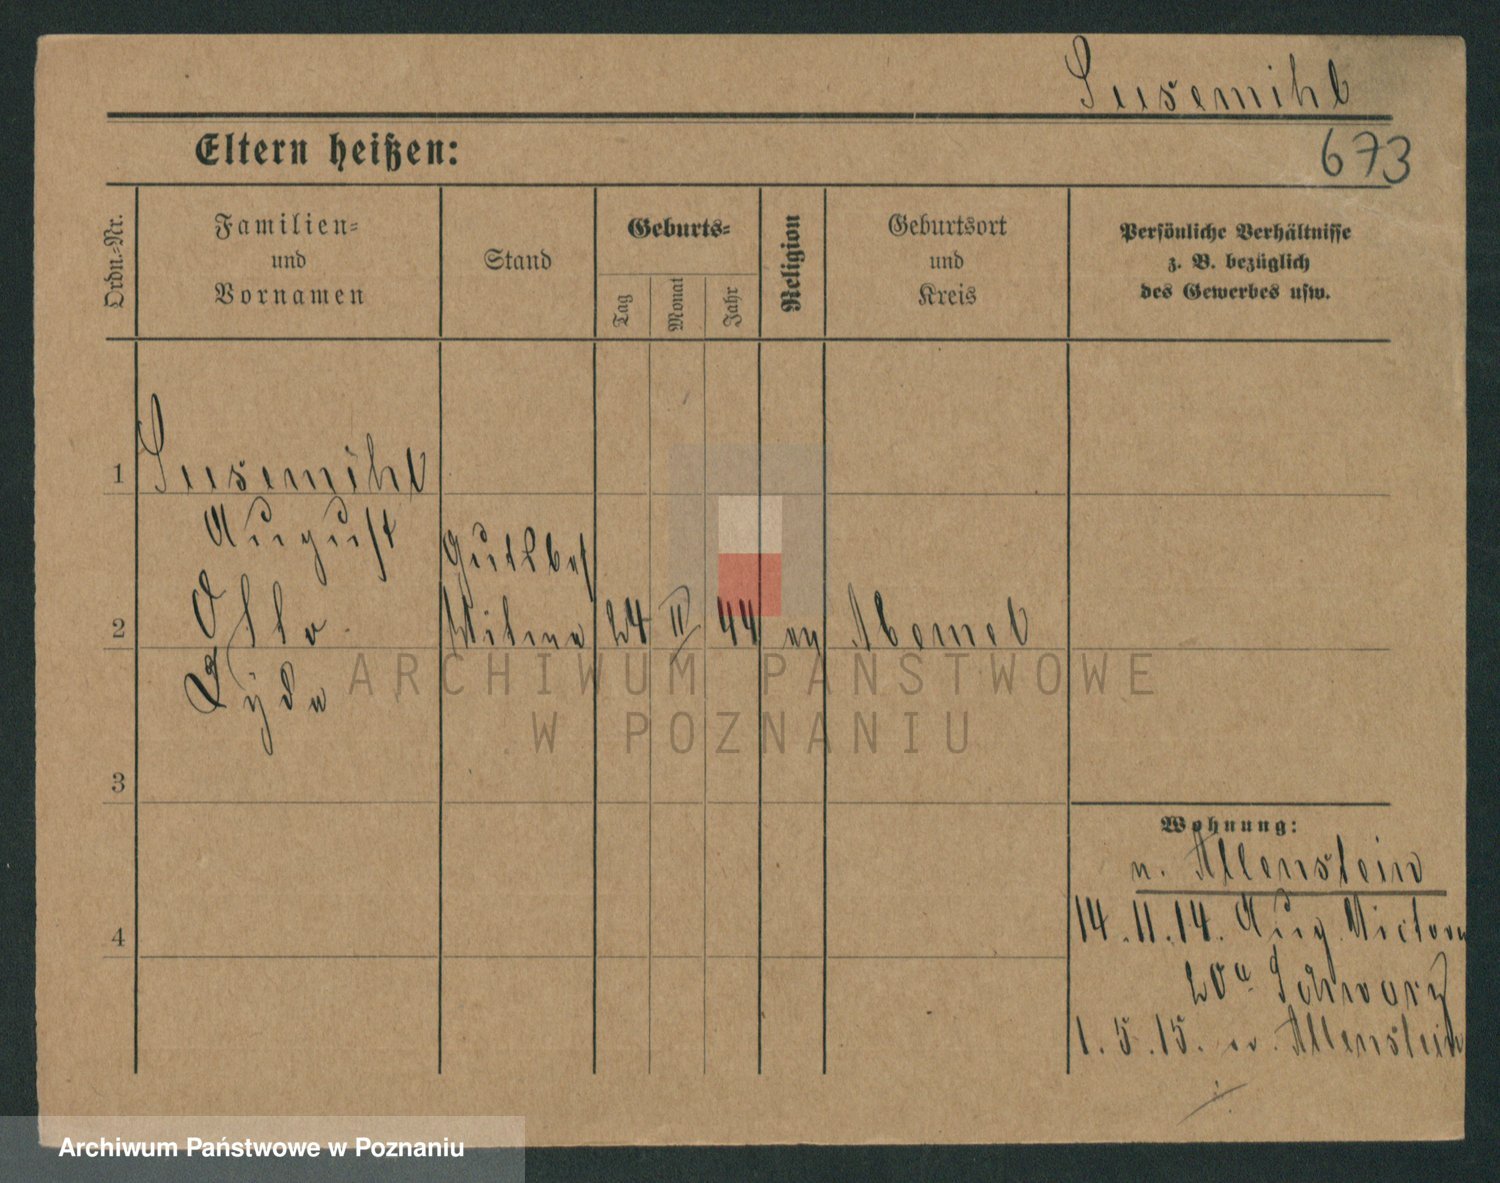 Susemihl
Eltern heißen:
673
Ordn.-Nr.
Familien-
und
Vornamen
Stand
Geburts-
Tag
Monat
Jahr
Religion
Geburtsort
und
Kreis
Persönliche Verhältnisse
z. B. bezüglich
des Gewerbes usw.
1
Susemihl
August
Otto
Lyda
Gutsbes
Witwe
2
24 II 44 ev
3
4
Wohnung:
n. Allenstein
14.11.14. Aug. Victoria
20a Schwarz
1.5.15. Allenstein
ARCHIWUM PAŃSTWOWE
W POZNANIU
Archiwum Państwowe w Poznaniu